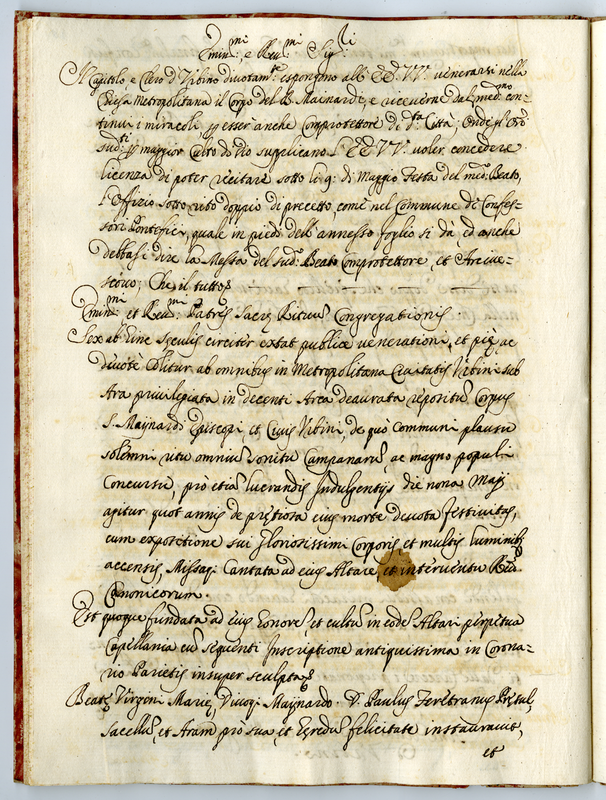 Emin:mi e Reu:mi Sig:ri
Il Capitolo, e Clero d'Vrbino diuotam:te espongono all' EE. VV. venerarsi nella
Chiesa Metropolitana il Corpo del B. Mainardi, e riceuerne dal med:mo con-
tinui i miracoli p esser anche Comprotettore di d:ta Città; Onde gl' Oró:
sud:ti p maggior Culto di Dio supplicano l' EE. VV. voler concedere
licenza di poter recitare sotto li 9: di Maggio festa del med:o Beato,
l'Offizio sotto rito doppio di precetto, come nel Commune di Confes-
sori Pontefici, quale in piedi dell' annesso foglio si dà, ed anche
debbasi dire la Messa del sud:o Beato Comprotettore, et Arciue-
scouo; Che il tutto
Emin:mi et Reu:mi Patres Sacrę Rituu Congregationis.
Sex ab hinc Sęculis circiter extat publicę venerationi, et piè, ac
diuotè Colitur ab omnibus in Metropolitana Ciuitatis Vrbini sub
Ara priuilegiata in decenti Arca deaurata repositu Corpus
S. Maynardi Episcopi, et Ciuis Vrbini, de quo communi plausu
solemni ritu omniu sonitu Campanaru, ac magno populi
Concursu, prò etia lucrandis Indulgentijs die nona Maij
agitur quot annis de prętiosa eius morte deuota festiuitas,
cum expositione sui Gloriosissimi Corporis et multis luminibs
accensis, Messaq Cantata ad eius Altare, et interuentu
Canonicorum.
Est quoque fundata ad Eius honore, et cultu in eode Altari perpetua
Capellania cu sequenti Inscriptione antiquissima in Corona-
rio Parietis insuper sculpta
Beatę Virgini Marię, Diuoq Maynardo. D. Paulus Feretranus Pręsul,
Sacellu, et Aram pro sua, et felicitate instaurauit,
et